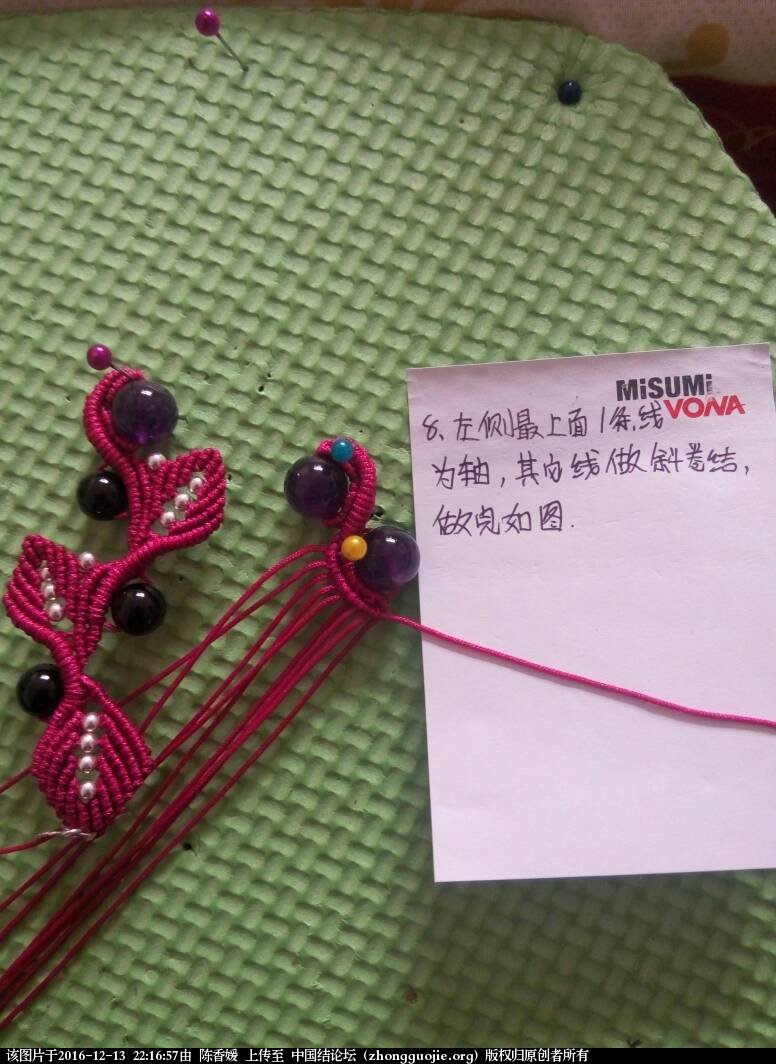 MiSUMi
VONA
8、左侧最上面1条线
为轴，其它线做斜卷结，
做完如图.
该图片于2016-12-13 22:16:57由 陈香媛 上传至 中国结论坛（zhongguojie.org）版权归原创者所有